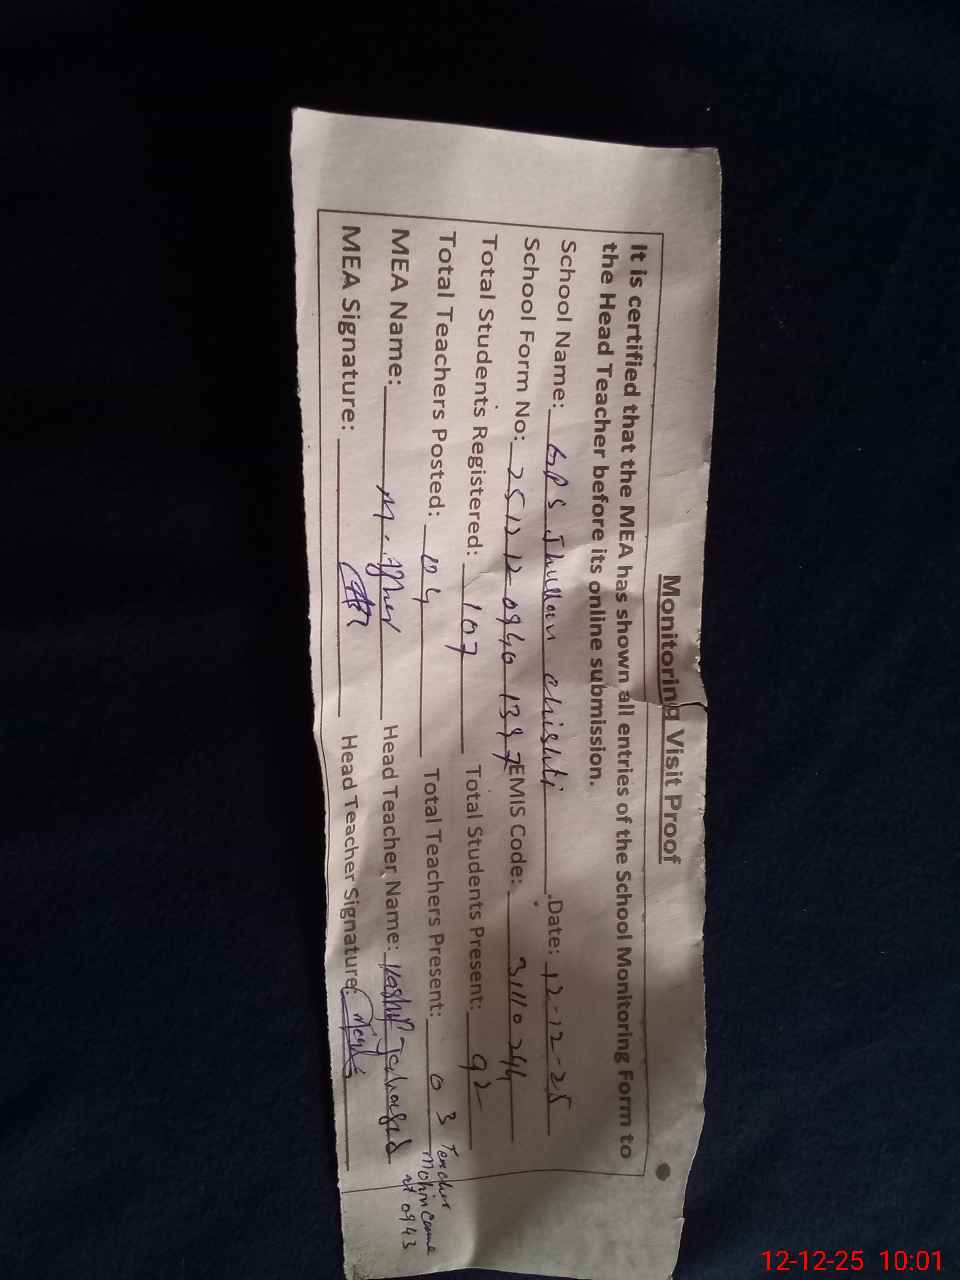 Monitoring Visit Proof
It is certified that the MEA has shown all entries of the School Monitoring Form to
the Head Teacher before its online submission.
School Name: GPS Jhullan chishti .Date: 12-12-25
School Form No: EMIS Code: 31110244
Total Students Registered: 107 Total Students Present: 92
Total Teachers Posted: 04 Total Teachers Present: 03 Teacher
Mohin came
at 0943
MEA Name: M. Head Teacher Name: Kashif
MEA Signature: Head Teacher Signature:
12-12-25 10:01